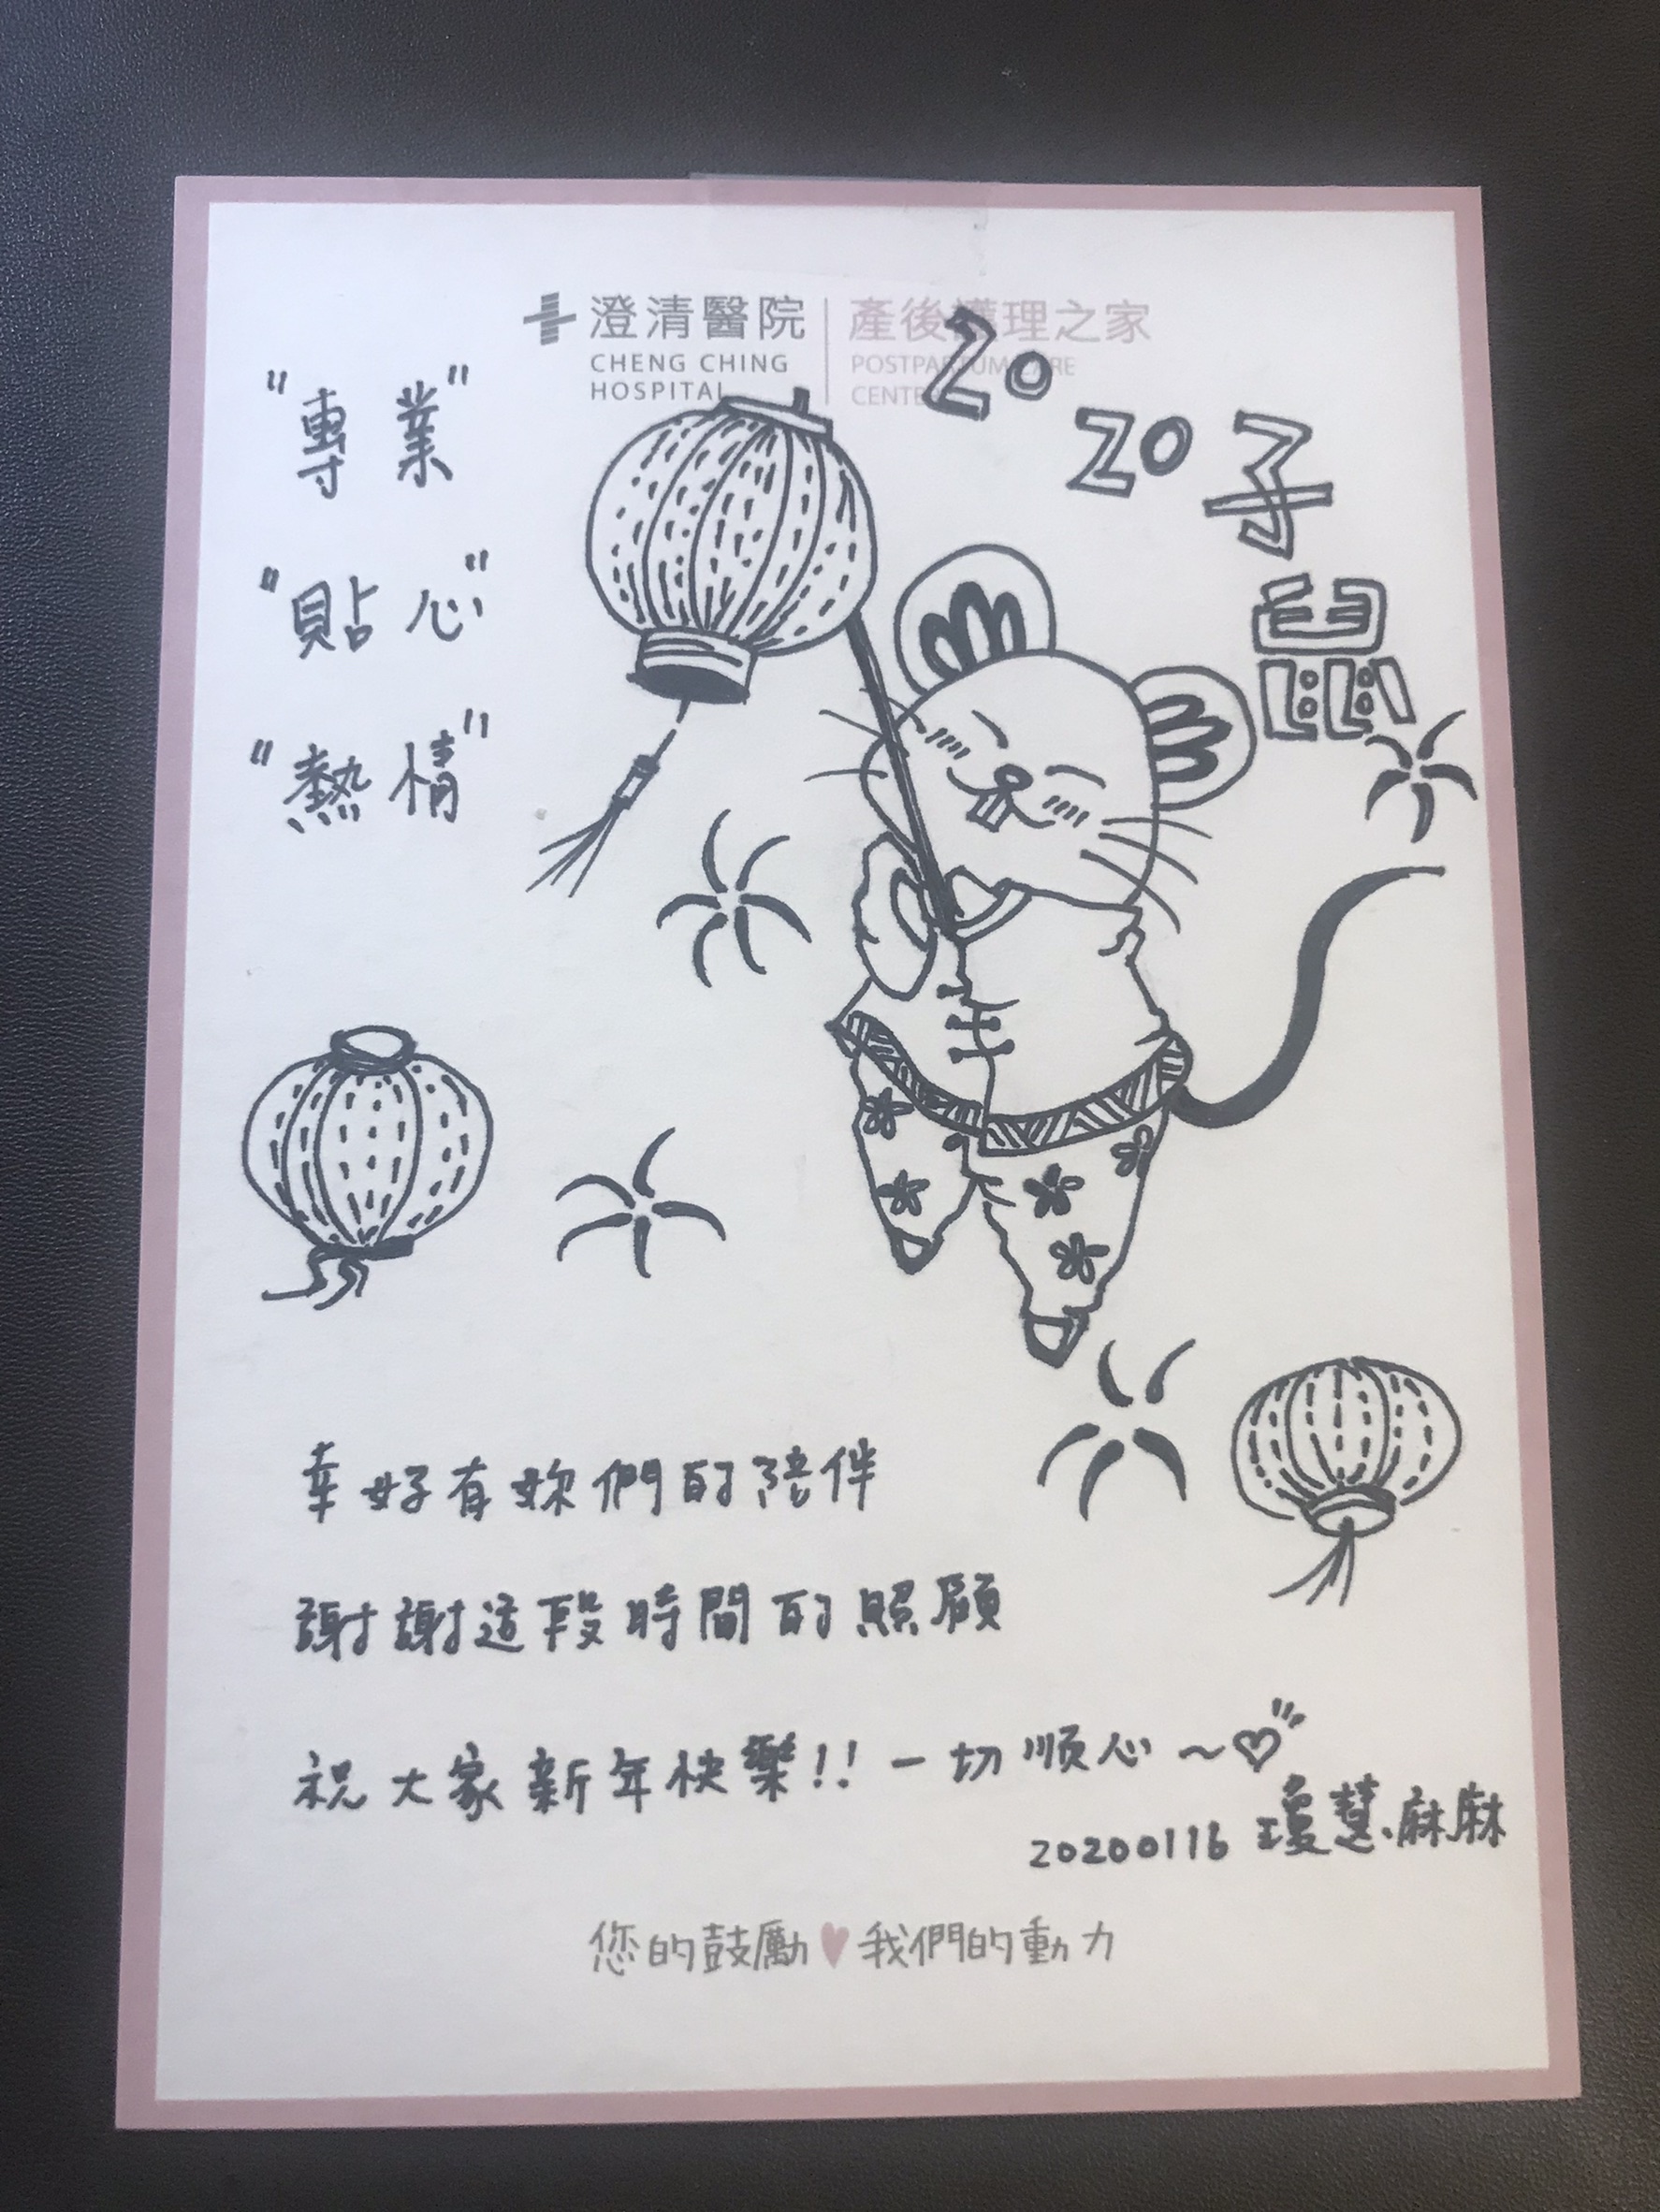 澄清醫院
CHENG CHING
HOSPITAL
產後護理之家
POSTPARTUM CARE
CENTER
2020子
鼠
"專業"
"貼心"
"熱情"
幸好有妳們的陪伴
謝謝這段時間的照顧
祝大家新年快樂!! 一切順心~♡
20200116 瓊慧麻麻
您的鼓勵♥我們的動力